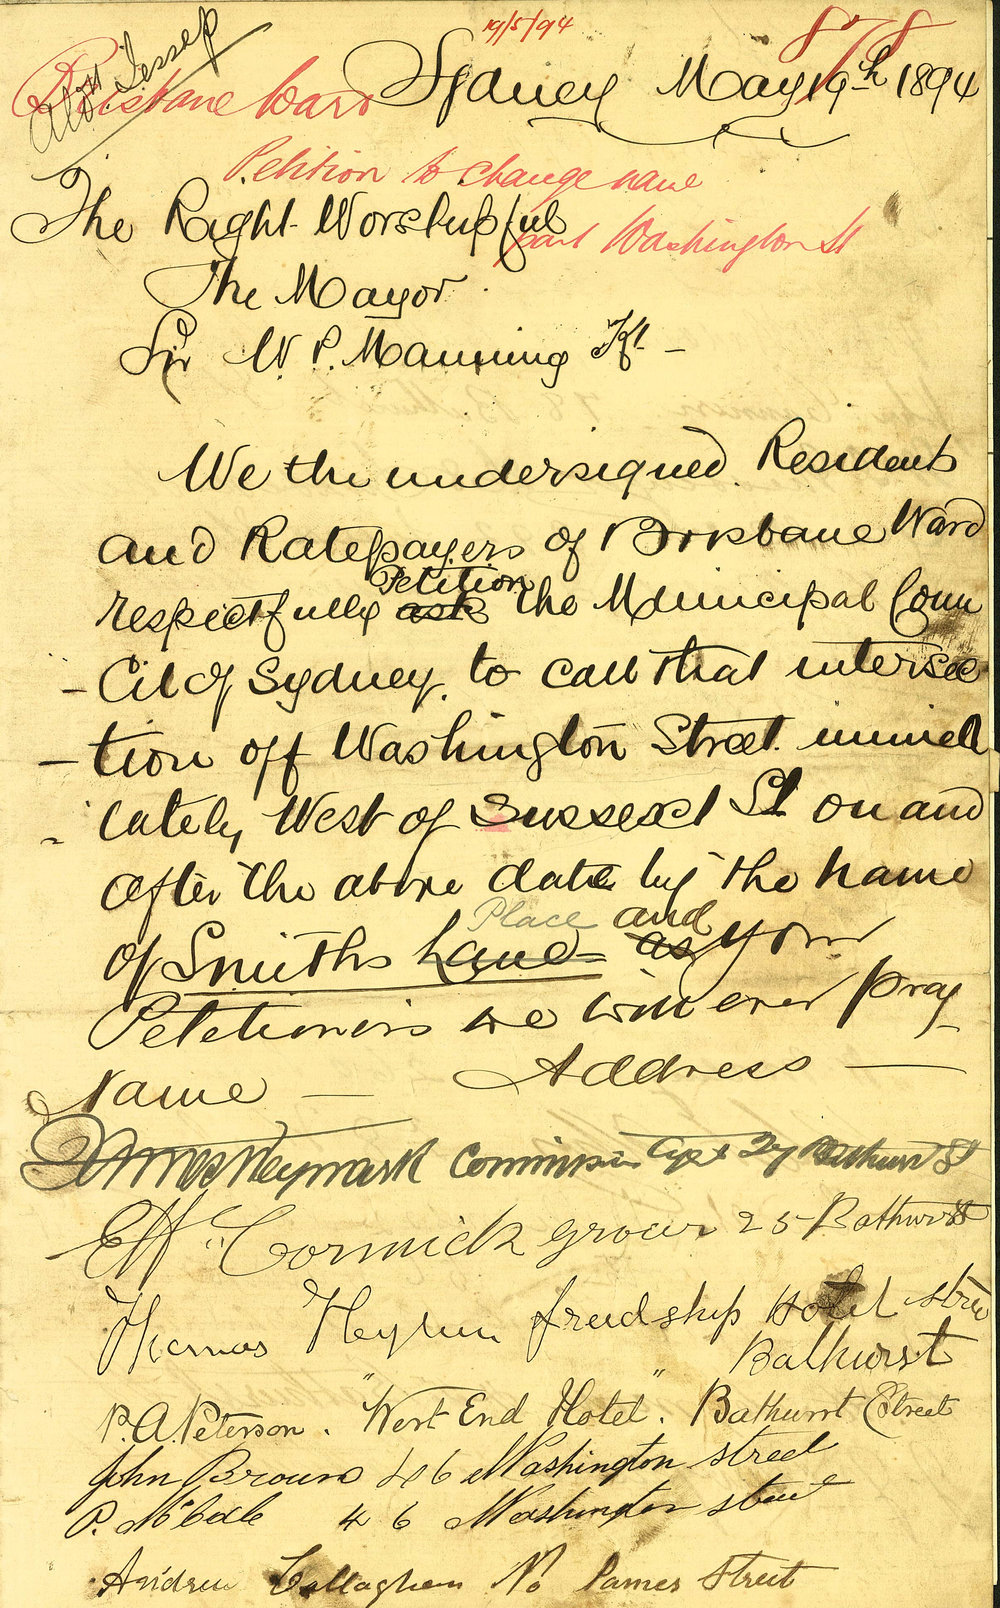 19/5/94
878
Ald Jessep
Brisbane Ward
Sydney May 19th 1894
Petition to change name
part Washington St
The Right Worshipful
The Mayor
Sir W. P. Manning Kt -
We the undersigned Residents
and Ratepayers of Brisbane Ward
respectfully ask Petition the Municipal Coun
- Cil of Sydney. to call that intersec
- tion off Washington Street immed
- iately West of Sussext St on and
after the above date by the name
of Smiths Lane Place as and your
Petitioners we will ever pray
Name - Address -
James Heymark Commission Agent 27 Bathurst St
E Mc Cormick grocer 25 Bathurst St
Thomas Heylun freudship Hotel stree
Bathurst
P. A. Peterson. "West End Hotel". Bathurst Street
John Brown 46 Washington street
P. McCole 46 Washington street
Andrew Callaghen No James Street